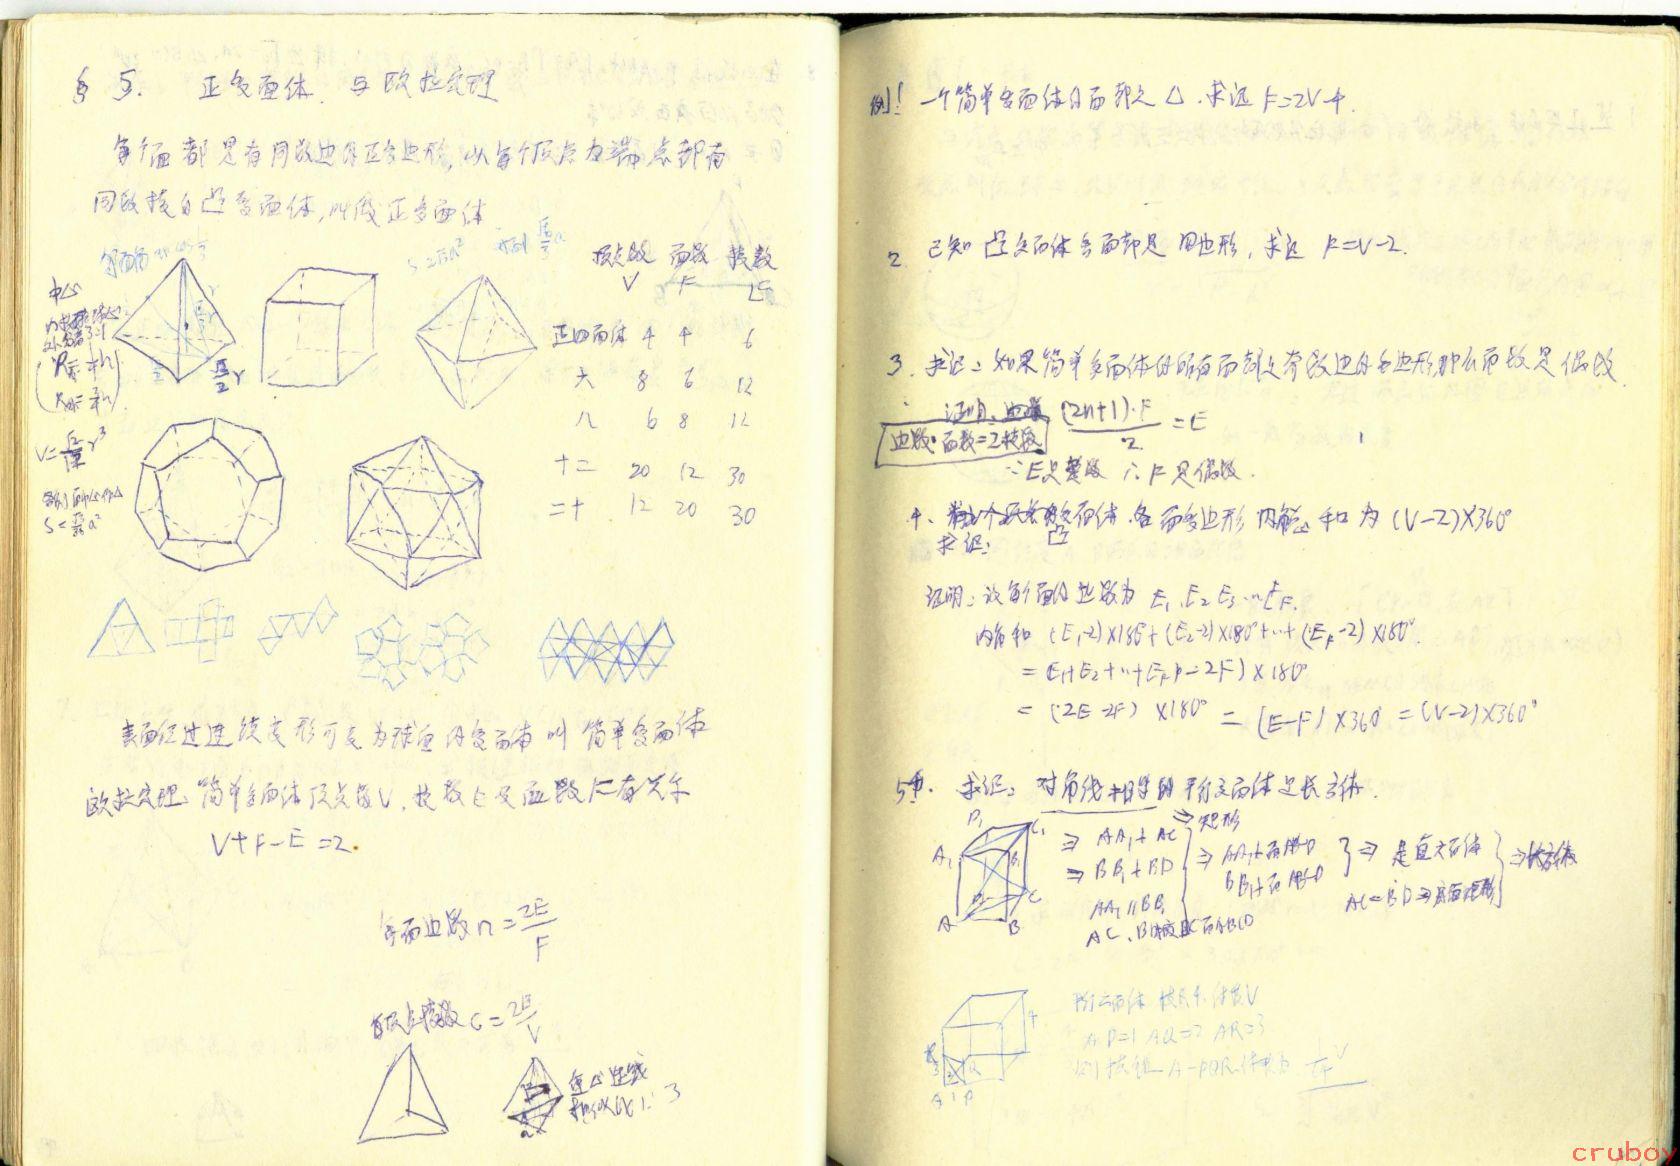 § 5. 正多面体与欧拉定理
每个面都是有同数边的正多边形,以每个顶点为端点都有
同数棱的凸多面体,叫做正多面体
中心
顶点数 面数 棱数
V F E
正四面体 4 4 6
六 8 6 12
八 6 8 12
十二 20 12 30
二十 12 20 30
表面经过连续变形可变为球面的多面体叫简单多面体
欧拉定理:简单多面体顶点数V,棱数E及面数F有关系
V+F-E=2.
每面边数n=2E/F
每顶点棱数c=2E/V
重心连线
相似比1:3
例1 一个简单多面体的面都是△.求证F=2V-4.
2 已知凸多面体各面都是四边形,求证 F=V-2.
3. 求证:如果简单多面体的所有面都是奇数边的多边形,那么面数是偶数.
证明: (2n+1)·F/2=E
边数·面数=2棱数
∵E是整数 ∴F是偶数.
4. 凸面体各面多边形内角和为(V-2)×360°
求证:
证明:设每个面的边数为 E₁、E₂ E₃…E_F.
内角和 (E₁-2)×180°+(E₂-2)×180°+…+(E_F-2)×180°.
=(E₁+E₂+…+E_F-2F)×180°
=(2E-2F)×180°=(E-F)×360°=(V-2)×360°
5. 求证:对角线相等的平行六面体是长方体.
D₁ C₁ A₁ B₁ D C A B
⇒ AA₁⊥AC ⇒矩形
⇒ BB₁⊥BD
AA₁∥BB₁
⇒ AA₁⊥面ABCD
BB₁⊥面ABCD
⇒ 是直六面体
⇒长方体
平行六面体 体积V
AP=1 AQ=2 AR=3
则棱锥A-PQR体积为
cruboy